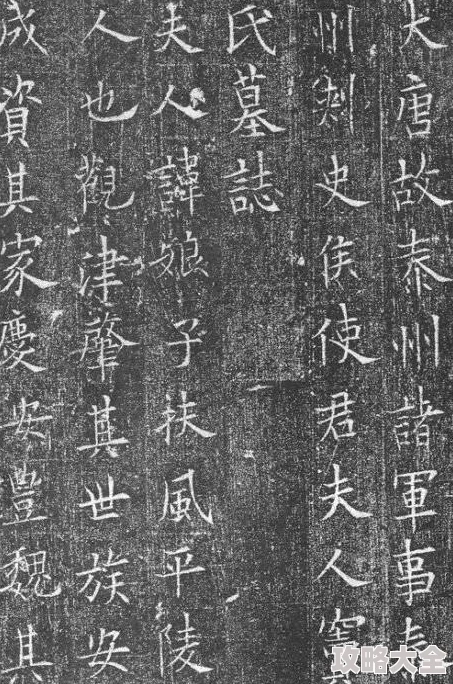 大唐故泰州諸軍事泰
州刾史侯使君夫人竇
氏墓誌
夫人諱娘子扶風平陵
人也觀津肇其世族安
成資其家慶安豐魏其
攻略大全